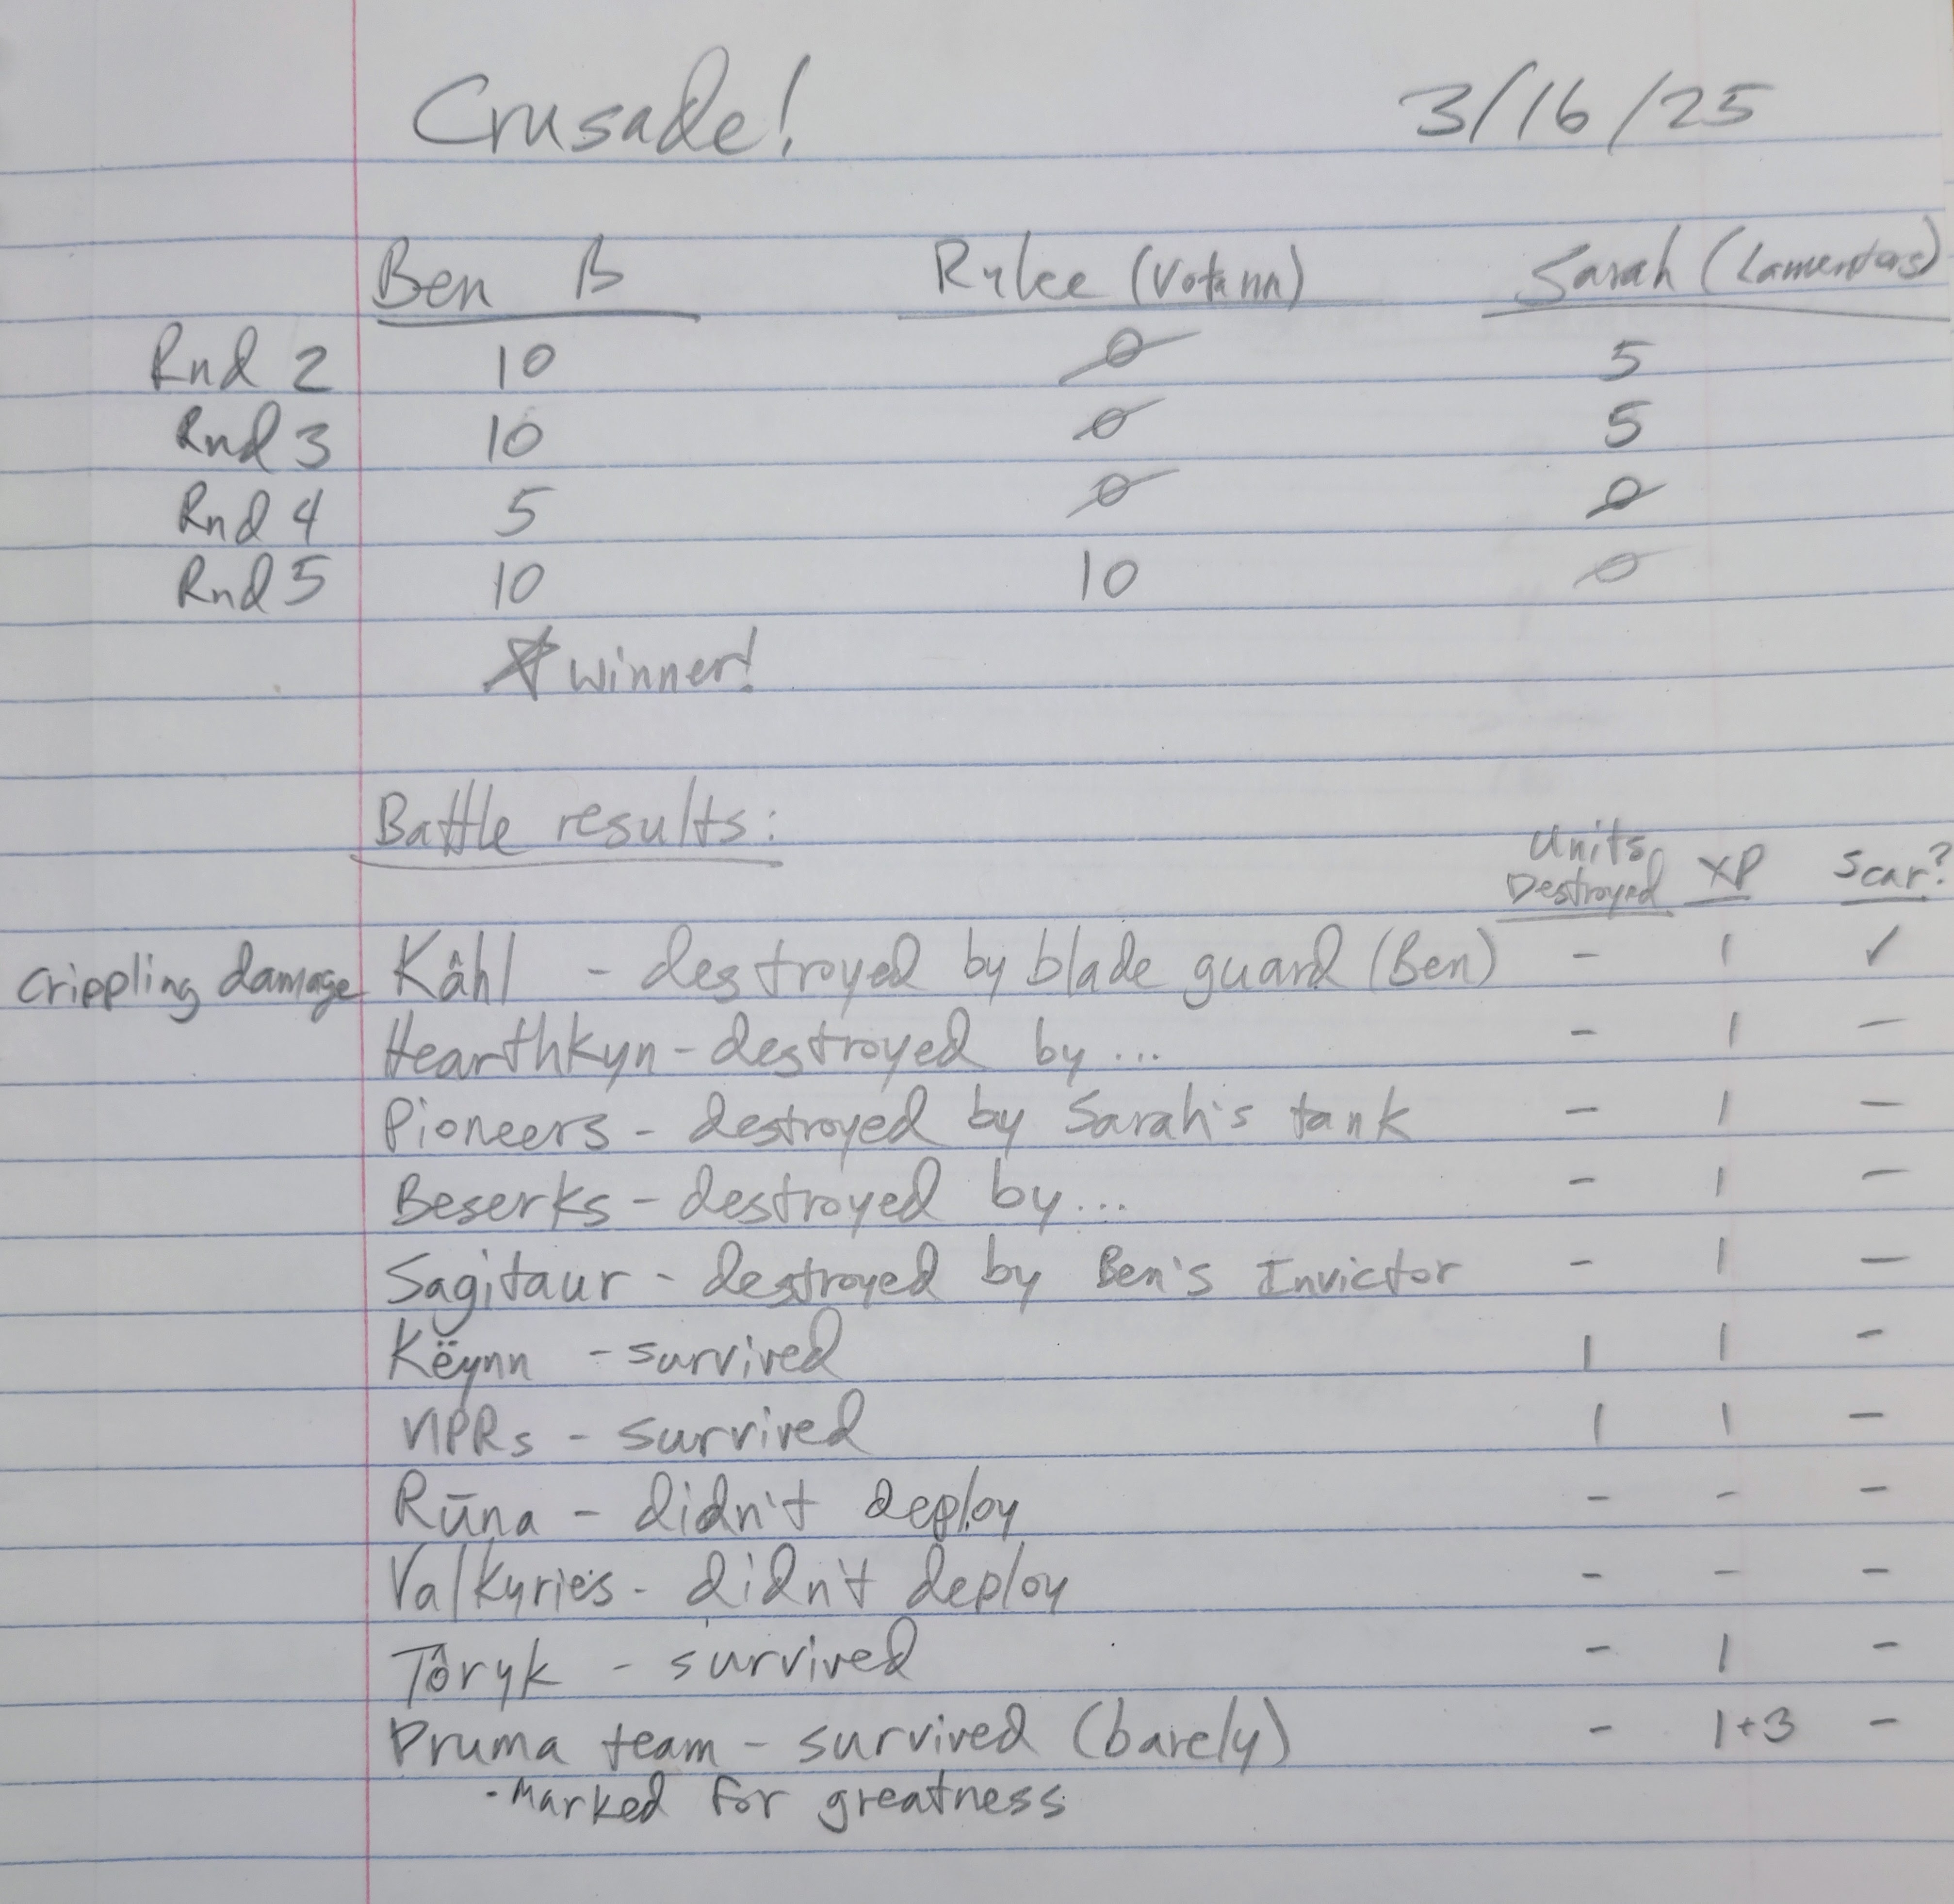 Crusade! 3/16/25
Ben B Rylee (Votann) Sarah (Lamentors)
Rnd 2 10 0 5
Rnd 3 10 0 5
Rnd 4 5 0 0
Rnd 5 10 10 0
☆ winner!
Battle results: Units Destroyed XP Scar?
Crippling damage Kâhl - destroyed by blade guard (Ben) - 1 ✓
Hearthkyn - destroyed by ... - 1 -
Pioneers - destroyed by Sarah's tank - 1 -
Beserks - destroyed by ... - 1 -
Sagitaur - destroyed by Ben's Invictor - 1 -
Këynn - survived 1 1 -
VIPRs - survived 1 1 -
Rūna - didn't deploy - - -
Valkyries - didn't deploy - - -
Tôryk - survived - 1 -
Druma team - survived (barely) - 1+3 -
- Marked for greatness